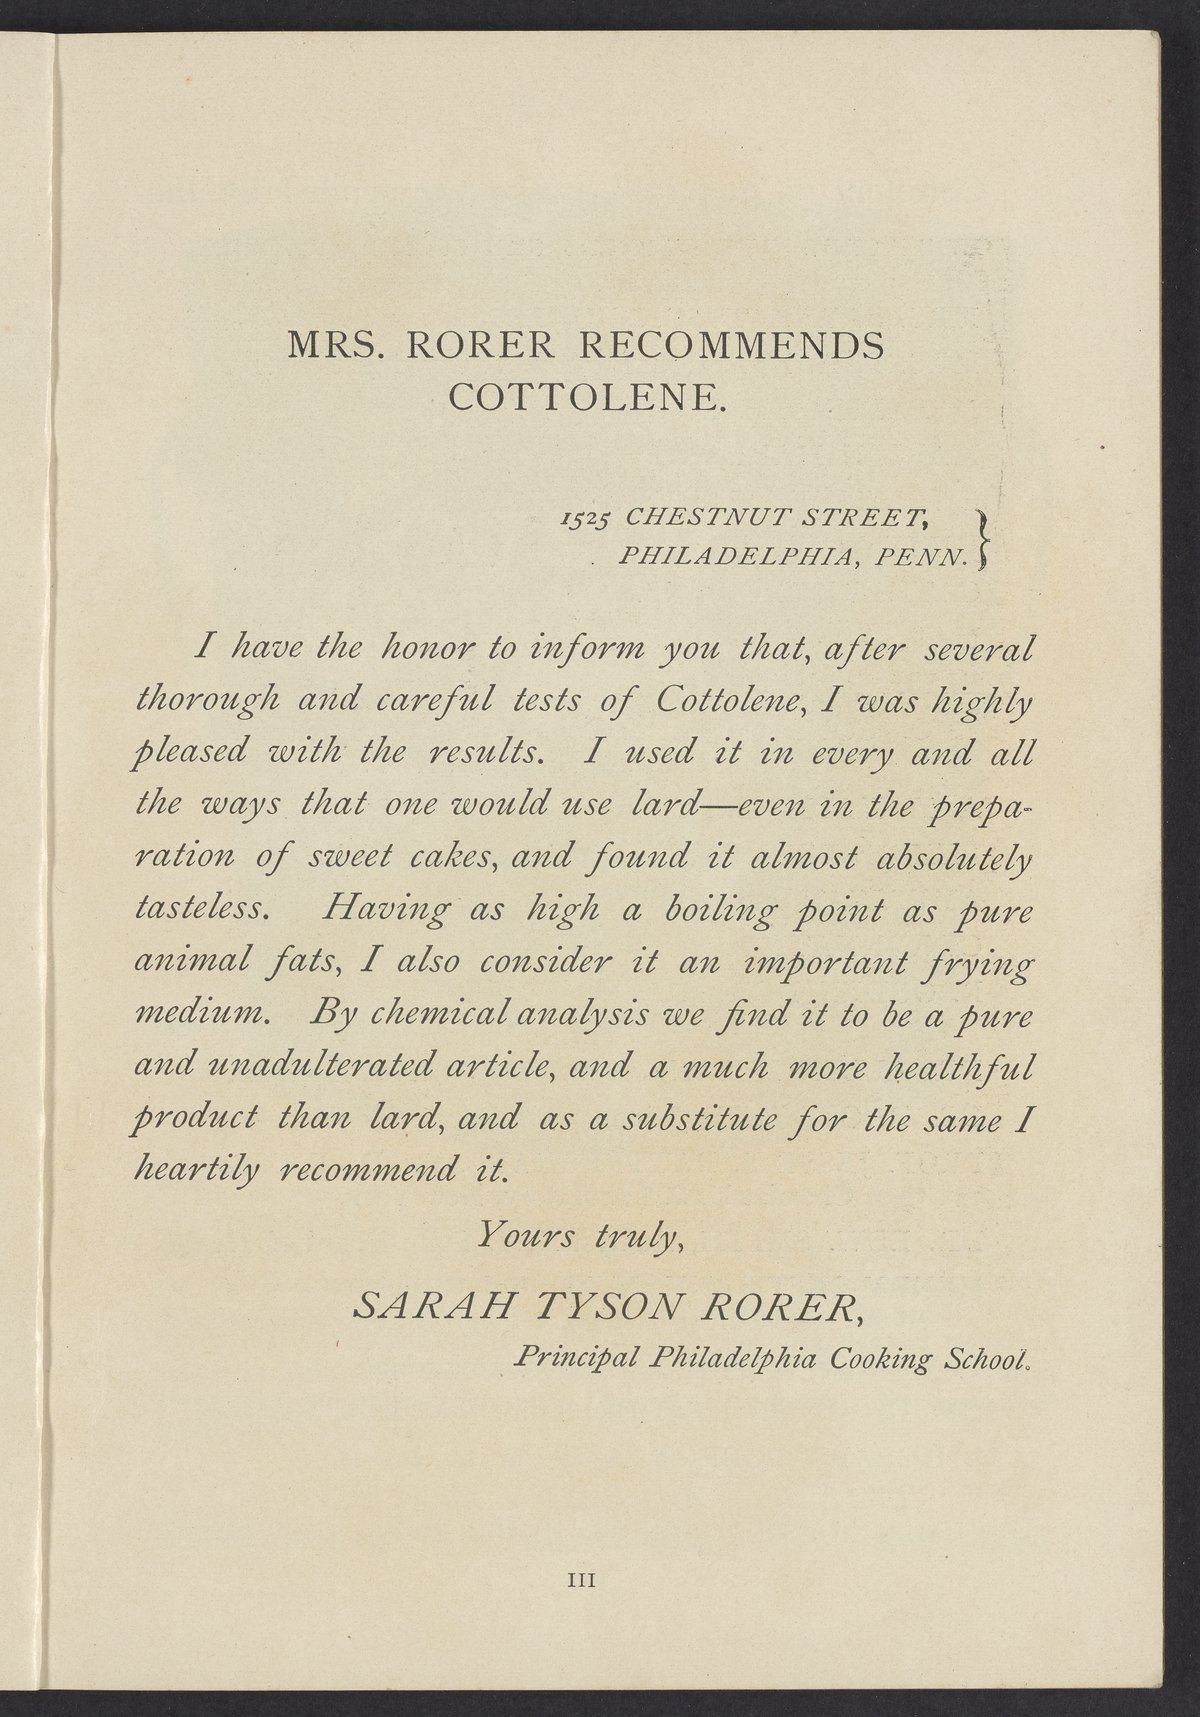 MRS. RORER RECOMMENDS
COTTOLENE.
1525 CHESTNUT STREET,
PHILADELPHIA, PENN. }
I have the honor to inform you that, after several
thorough and careful tests of Cottolene, I was highly
pleased with the results. I used it in every and all
the ways that one would use lard—even in the prepa-
ration of sweet cakes, and found it almost absolutely
tasteless. Having as high a boiling point as pure
animal fats, I also consider it an important frying
medium. By chemical analysis we find it to be a pure
and unadulterated article, and a much more healthful
product than lard, and as a substitute for the same I
heartily recommend it.
Yours truly,
SARAH TYSON RORER,
Principal Philadelphia Cooking School.
III